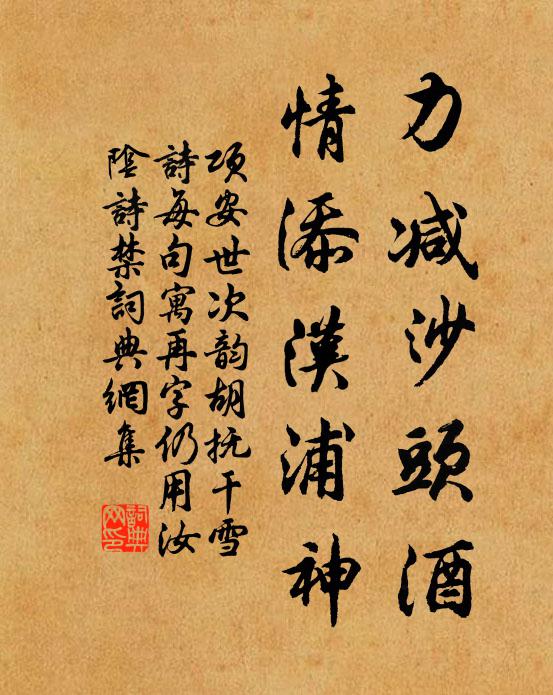 力减沙頭酒
情添漢浦神
項安世次韵胡抚干雪
詩每句寓再字仍用汝
陰詩禁詞典網集
詞典网印